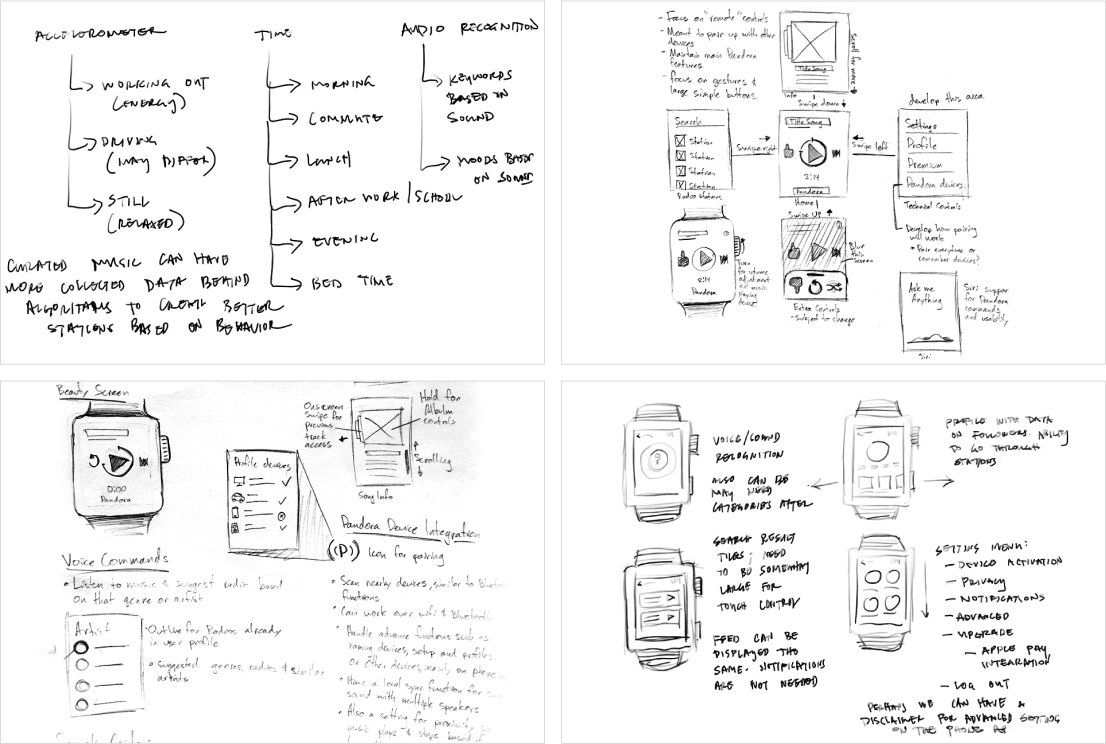 ACCELEROMETER
WORKING OUT
(ENERGY)
DRIVING
(MAY DIFFER)
STILL
(RELAXED)
TIME
MORNING
COMMUTE
LUNCH
AFTER WORK / SCHOOL
EVENING
BED TIME
AUDIO RECOGNITION
KEYWORDS
BASED ON
SOUND
MOODS BASED
ON SOUND
CURATED MUSIC CAN HAVE
MORE COLLECTED DATA BEHIND
ALGORITHMS TO CREATE BETTER
STATIONS BASED ON BEHAVIOR
- Focus on "remote" controls
- Meant to pair up with other
devices
- Maintain main Pandora
features
- focus on gestures &
large simple buttons.
Title Song
Scroll for more
Info
Swipe down
Search
Station
Station
Station
Station
Radio stations
Swipe right
Title Song
2:14
Pandora
Home
Swipe left
develop this area
Settings
Profile
Premium
Pandora devices
Technical Controls
Develop how pairing
will work
* Pair everytime or
remember devices?
2:14
Pandora
Turn
for volume
adjustment
on music
playing
device
Swipe UP
Blur
this
screen
Extra Controls
- Subject to change
Ask me
Anything
Siri
Siri support
for Pandora
commands
and usability
Beauty Screen
0:00
Pandora
Profile devices
Onscreen
swipe for
previous
track
access
Hold for
Album
controls
Scrolling
Song Info
Pandora Device Integration
((P)) Icon for pairing
• Scan nearby devices, similar to
functions
• Can work over wifi & Bluetooth
• Handle advance functions such as
naming devices, setup and profiles
on other devices, mainly on phone
• Have a local sync function for
sound with multiple speakers
• Also a setting for proximity
music plays & stops based
Voice Commands
• Listen to music & suggest radio based
on that genre or artist
Artist
• Outline for Radios already
in user profile
• Suggested genres, radios & similar
artists
VOICE/SOUND
RECOGNITION
ALSO CAN BE
MAY NEED
CATEGORIES AFTER
SEARCH RESULT
TILES, NEED
TO BE SOMEWHAT
LARGE FOR
TOUCH CONTROL
FEED CAN BE
DISPLAYED THE
SAME. NOTIFICATIONS
ARE NOT NEEDED
PROFILE WITH DATA
ON FOLLOWERS. ABILITY
TO GO THROUGH
STATIONS
SETTING MENU:
- DEVICE ACTIVATION
- PRIVACY
- NOTIFICATIONS
- ADVANCED
- UPGRADE
- APPLE PAY
INTEGRATION
- LOG OUT
PERHAPS WE CAN HAVE A
DISCLAIMER FOR ADVANCED SETTING
ON THE PHONE